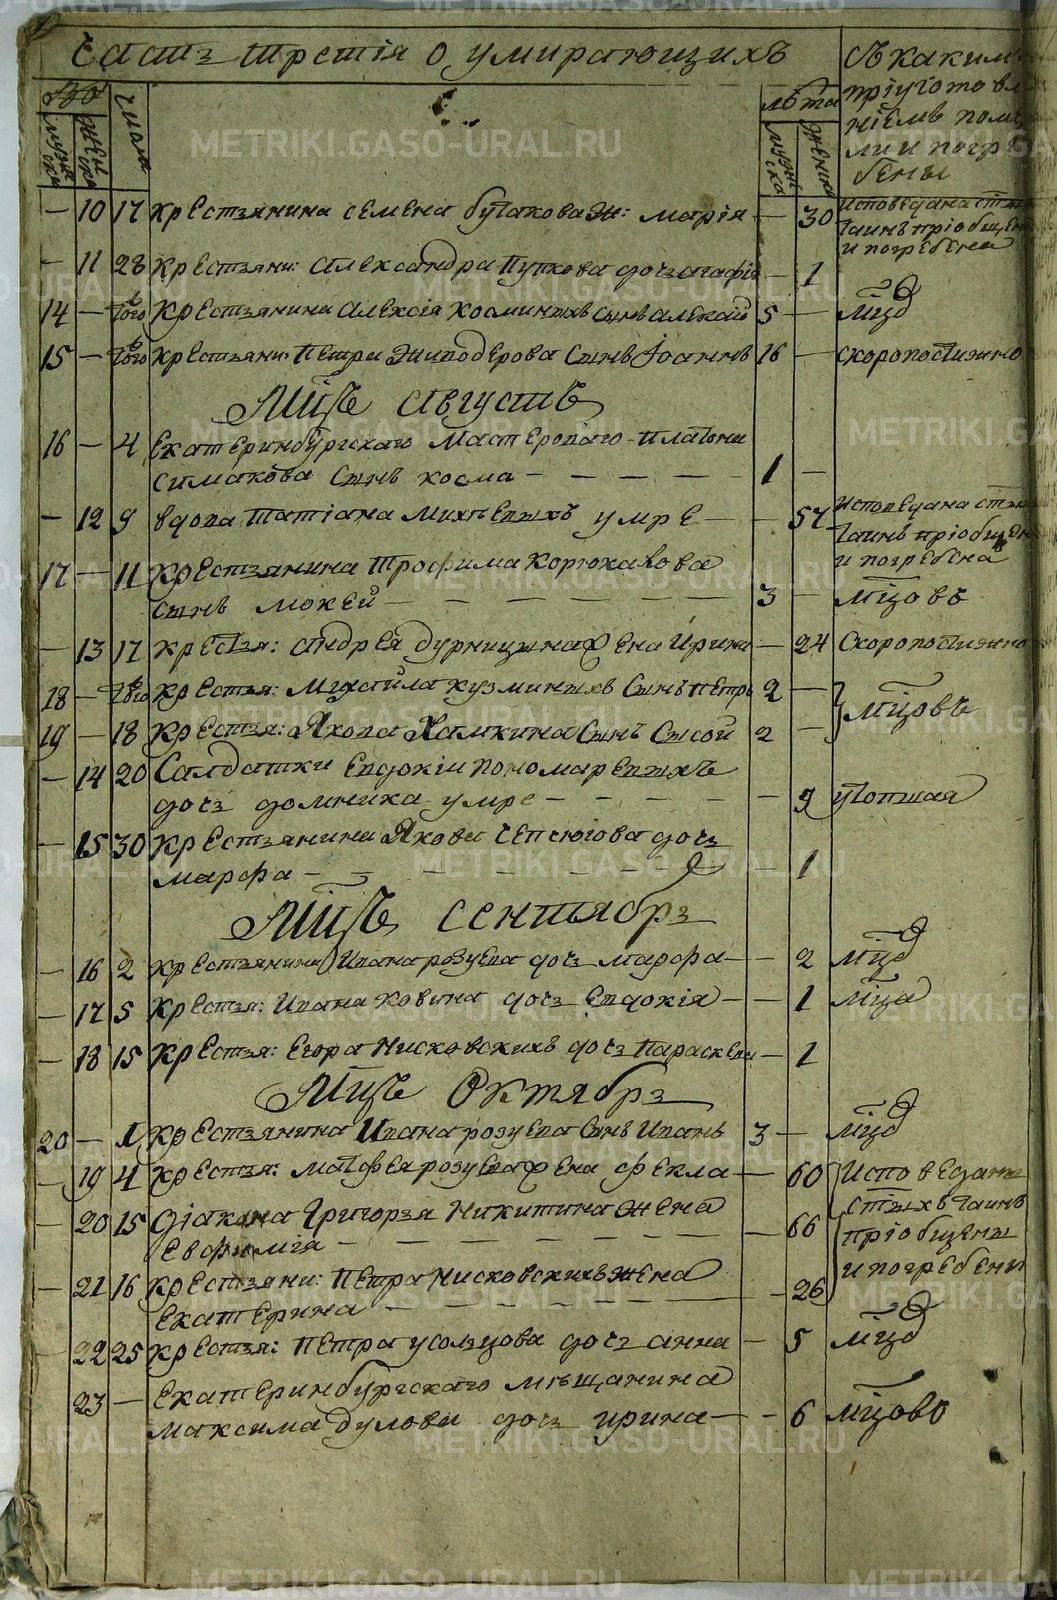 Часть третія о умирающихъ
Съ каким
пріуготовл
ніемъ поме
ли и погре
бены
числа
лѣта
мужска
женска
мужска
женска
— 10 17 крестьянина семена бутакова ж: марія — 30 исповедана ст
таинъ пріобщен
и погребена
— 11 28 крестьяни: александра пупкова дочь агафія — 1
14 — того крестьянина алексія косминыхъ сынъ алексѣй 5 — мцд
15 — того крестьяни: петра живодерова сынъ Іоаннъ 16 — скоропостижно
Мцъ августъ
16 — 4 екатеринбургскаго мастероваго платона
симакова сынъ косма — — — — — 1 —
— 12 9 вдова татіана михѣевыхъ умре — — 57 исповедана ст
таинъ пріобщен
и погребена
17 — 11 крестьянина трофима корюкалова
сынъ мокей — — — — — — 3 — мцовъ
— 13 17 крестья: андрея дурницына жена ирина — 24 скоропостижно
18 — того крестья: михаила кузминыхъ сынъ петръ 2 —
мцовъ
19 — 18 крестья: Якова Хамкина сынъ сысой 2 —
— 14 20 Салдатки евдокіи пономаревыхъ
дочь домника умре — — — — — 9 утопшая
— 15 30 крестьянина Якова чепчюгова дочь
марфа — — — — — — — 1
Мцъ сентябрь
— 16 2 крестьянина Ивана розуева дочь марфа — — 2 мцд
— 17 5 крестья: Ивана ховина дочь евдокія — — 1 мцд
— 18 15 крестья: егора нисковскихъ дочь параскева — 1
Мцъ Октябрь
20 — 1 крестьянина Ивана розуева сынъ иванъ 3 — мцд
— 19 4 крестья: матфея розуева жена фекла — 60 исповеданы
— 20 15 діакона григорья никитина жена
66 стыхъ таинъ
евфимія — — — — — — — пріобщены
— 21 16 крестьяни: петра нисковскихъ жена — 26 и погребены
екатерина — — — — —
— 22 25 крестья: петра усольцова дочь анна — 5 мцд
23 — екатеринбургскаго мѣщанина
максима дулова дочь ирина — — 6 мцово
METRIKI.GASO-URAL.RU